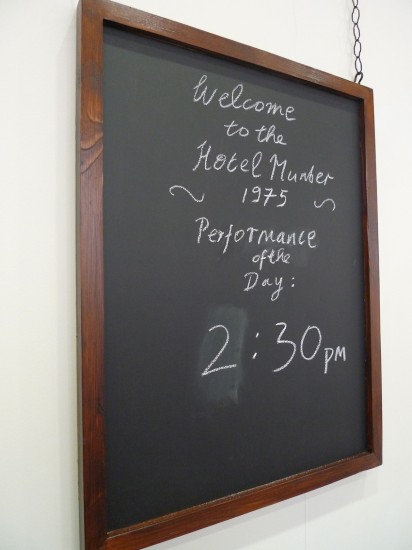 Welcome
to the
Hotel Munber
~ 1975 ~
Performance
of the
Day:
2:30 pm